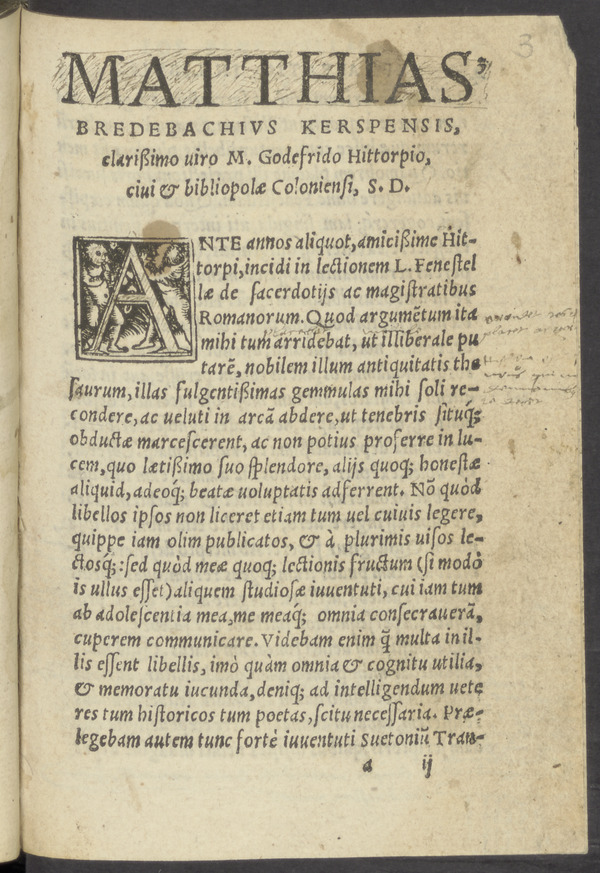 3
MATTHIAS
BREDEBACHIVS KERSPENSIS,
clarißimo uiro M. Godefrido Hittorpio,
ciui & bibliopolæ Coloniensi, S. D.
ANTE annos aliquot, amicißime Hit-
torpi, incidi in lectionem L. Fenestel
læ de sacerdotijs ac magistratibus
Romanorum. Quod argumẽtum ita
mihi tum arridebat, ut illiberale pu
tarẽ, nobilem illum antiquitatis the
saurum, illas fulgentißimas gemmulas mihi soli re-
condere, ac ueluti in arcã abdere, ut tenebris situq́;
obductæ marcescerent, ac non potius proferre in lu-
cem, quo lætißimo suo splendore, alijs quoq; honestæ
aliquid, adeoq́; beatæ uoluptatis adferrent. Nõ quòd
libellos ipsos non liceret etiam tum uel cuiuis legere,
quippe iam olim publicatos, & à plurimis uisos le-
ctosq́;: sed quòd meæ quoq; lectionis fructum (si modò
is ullus esset) aliquem studiosæ iuuentuti, cui iam tum
ab adolescentia mea, me meaq́; omnia consecrauerã,
cuperem communicare. Videbam enim q̃ multa in il-
lis essent libellis, imò quàm omnia & cognitu utilia,
& memoratu iucunda, deniq; ad intelligendum uete
res tum historicos tum poetas, scitu necessaria. Præ-
legebam autem tunc fortè iuuentuti Suetoniũ Tran-
a ij